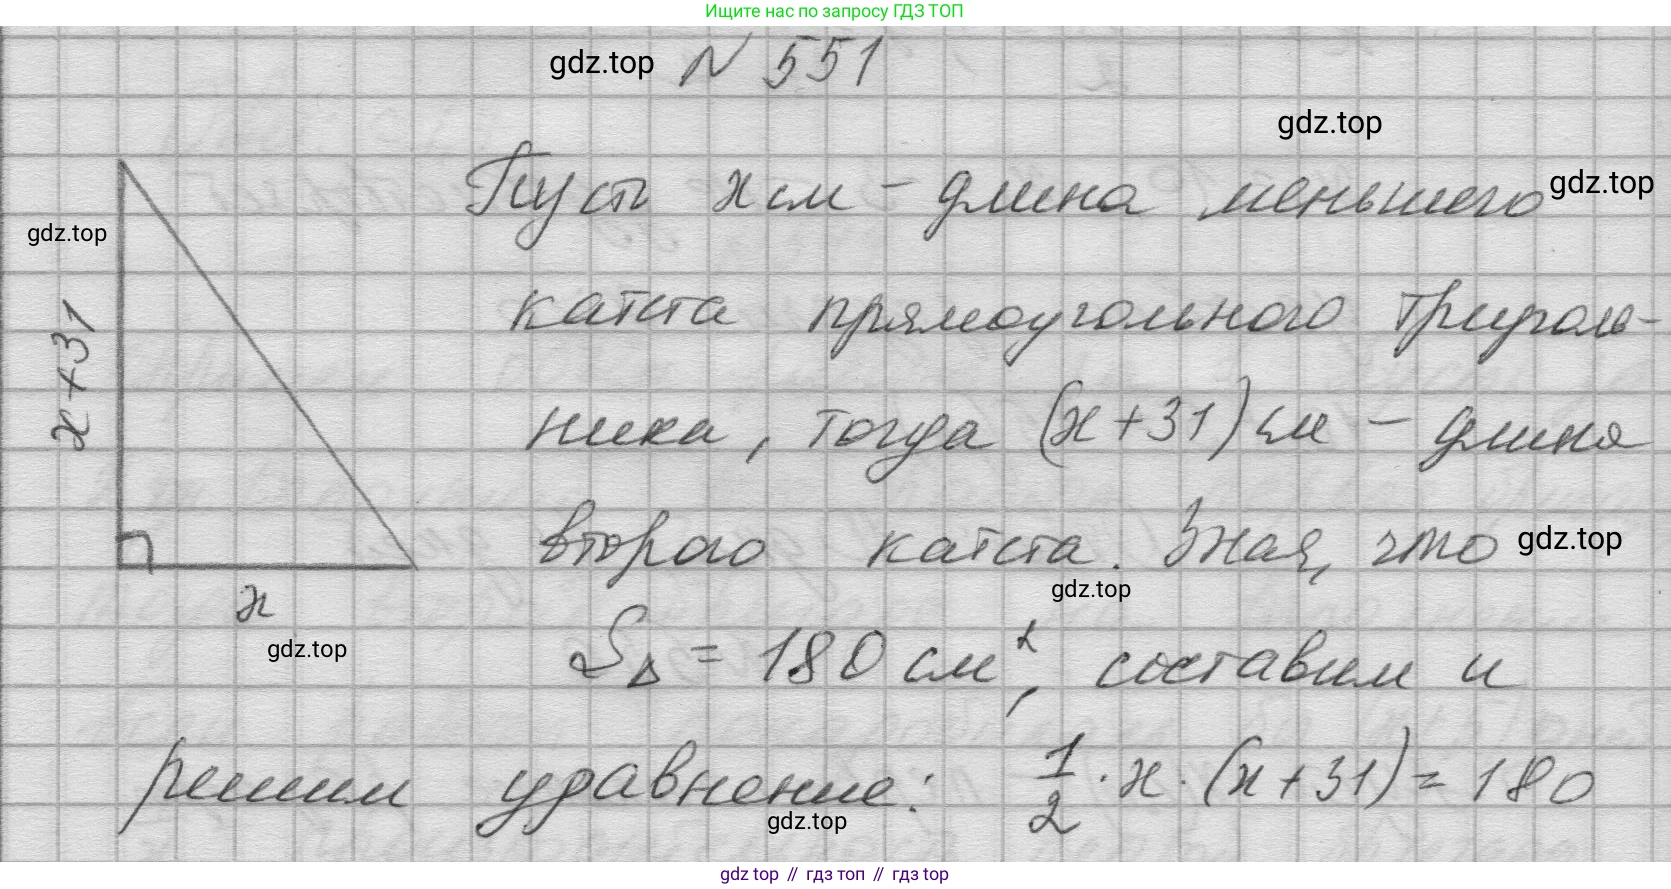 Ищите нас по запросу ГДЗ ТОП
gdz.top N 551
gdz.top
Пусть x см – длина меньшего gdz.top
gdz.top
катета прямоугольного треуголь-
x+31
ника, тогда (x+31) см – длина
второго катета. Зная, что gdz.top
gdz.top
x
S∆ = 180 см², составим и
gdz.top
решим уравнение: 1/2 · x · (x+31) = 180
gdz.top
gdz top // гдз топ // gdz top